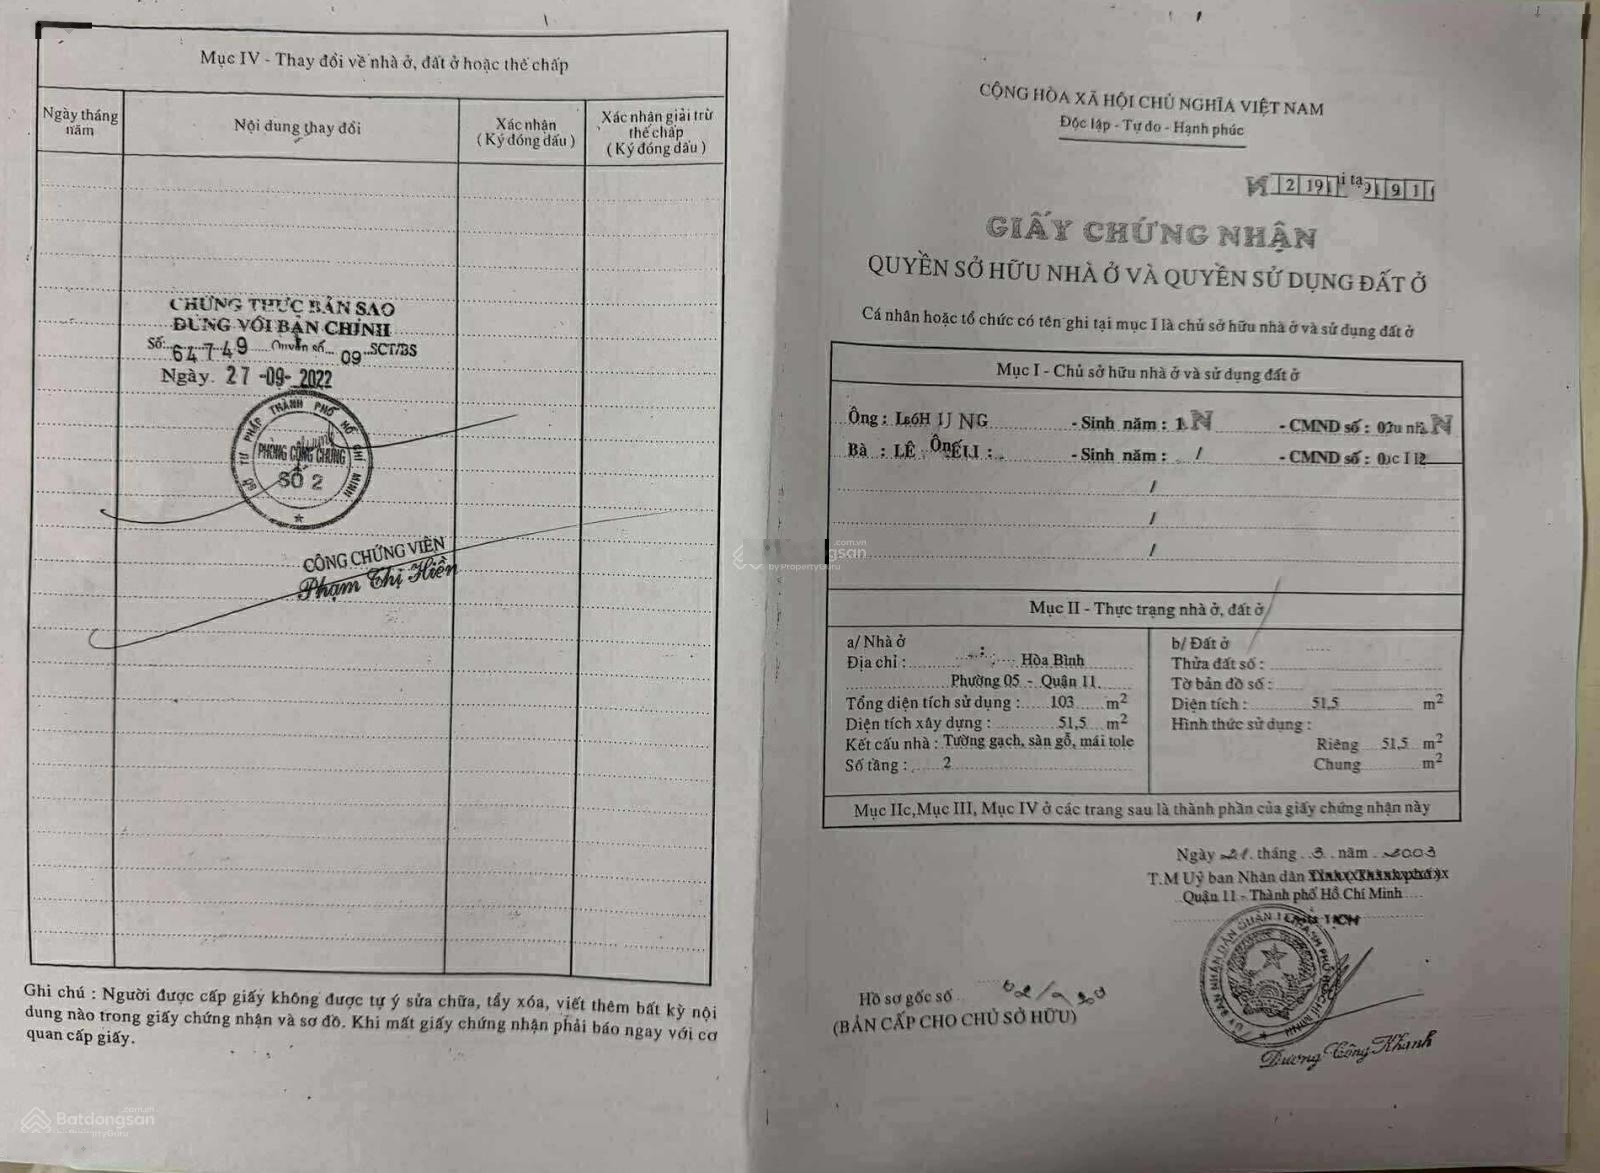 Mục IV - Thay đổi về nhà ở, đất ở hoặc thế chấp
Ngày tháng năm
Nội dung thay đổi
Xác nhận
( Ký đóng dấu )
Xác nhận giải trừ
thế chấp
( Ký đóng dấu )
CHỨNG THỰC BẢN SAO
ĐÚNG VỚI BẢN CHÍNH
Số: 64749 Quyển số 09 SCT/BS
Ngày. 27 -09- 2022
SỞ TƯ PHÁP THÀNH PHỐ HỒ CHÍ MINH
PHÒNG CÔNG CHỨNG
SỐ 2
CÔNG CHỨNG VIÊN
Phạm Thị Hiền
Ghi chú : Người được cấp giấy không được tự ý sửa chữa, tẩy xóa, viết thêm bất kỳ nội
dung nào trong giấy chứng nhận và sơ đồ. Khi mất giấy chứng nhận phải báo ngay với cơ
quan cấp giấy.
Batdongsan
.com.vn
by PropertyGuru
CỘNG HÒA XÃ HỘI CHỦ NGHĨA VIỆT NAM
Độc lập - Tự do - Hạnh phúc
GIẤY CHỨNG NHẬN
QUYỀN SỞ HỮU NHÀ Ở VÀ QUYỀN SỬ DỤNG ĐẤT Ở
Cá nhân hoặc tổ chức có tên ghi tại mục I là chủ sở hữu nhà ở và sử dụng đất ở
Mục I - Chủ sở hữu nhà ở và sử dụng đất ở
Ông : - Sinh năm : - CMND số :
Bà : LÊ - Sinh năm : / - CMND số :
/
/
/
.com.vn
by PropertyGuru
Mục II - Thực trạng nhà ở, đất ở
a/ Nhà ở
Địa chỉ : Hòa Bình
Phường 05 - Quận 11.
Tổng diện tích sử dụng : 103 m2
Diện tích xây dựng : 51,5 m2
Kết cấu nhà : Tường gạch, sàn gỗ, mái tole
Số tầng : 2
b/ Đất ở
Thửa đất số :
Tờ bản đồ số :
Diện tích : 51,5 m2
Hình thức sử dụng :
Riêng 51,5 m2
Chung m2
Mục IIc, Mục III, Mục IV ở các trang sau là thành phần của giấy chứng nhận này
Ngày 21 tháng 3 năm 2003
T.M Uỷ ban Nhân dân
Quận 11 - Thành phố Hồ Chí Minh
CHỦ TỊCH
Dương Công Khanh
Hồ sơ gốc số
(BẢN CẤP CHO CHỦ SỞ HỮU)